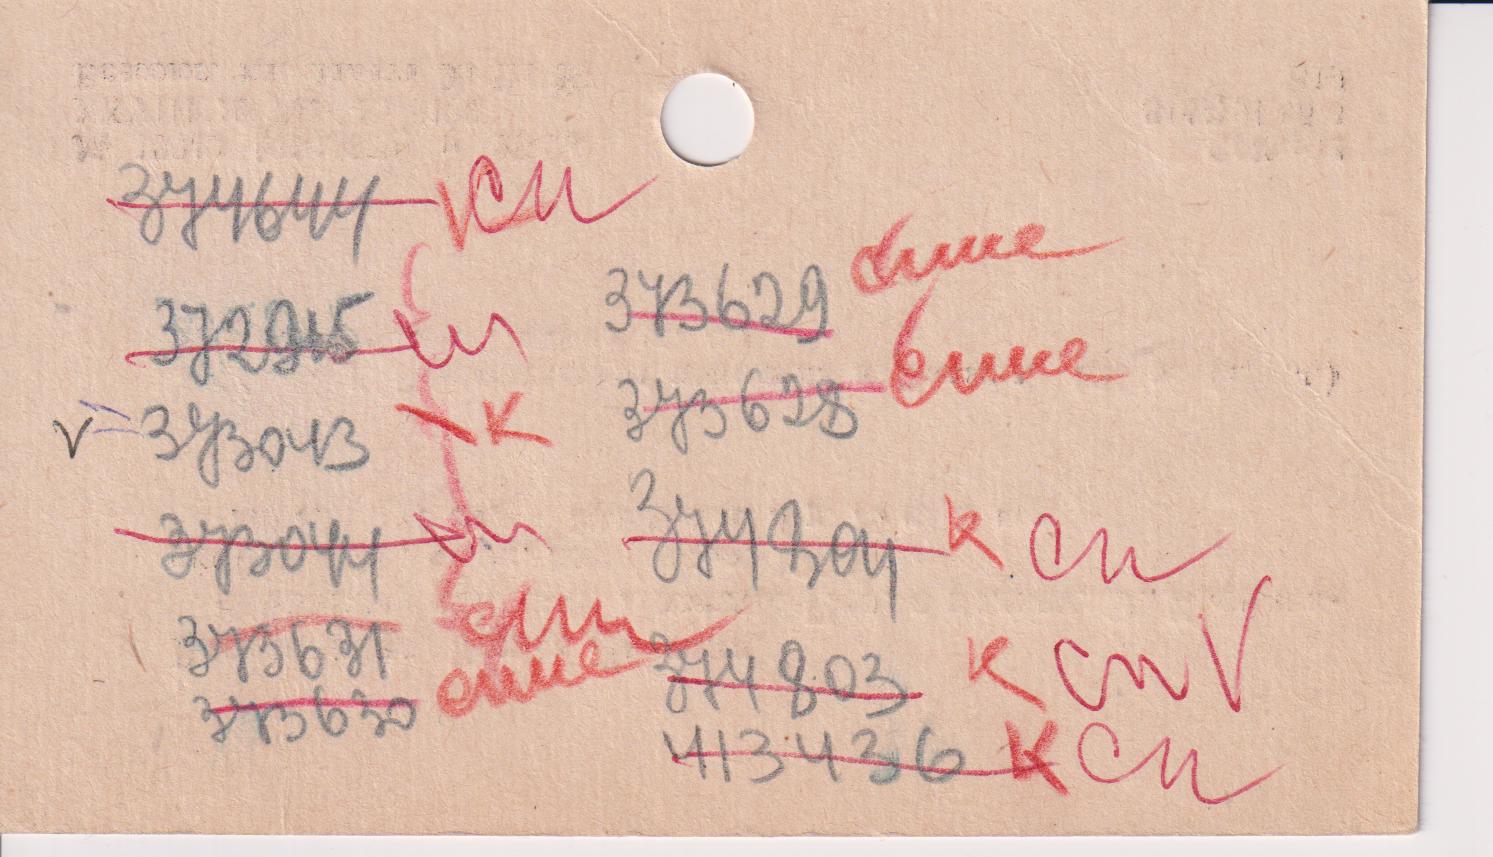 374644 К СП
372945 сп
V 373043 К
373044 сп
373631 спи
373630 спис
373629 спис
373628 спис
374804 К СП
374803 К СП V
413436 К СП